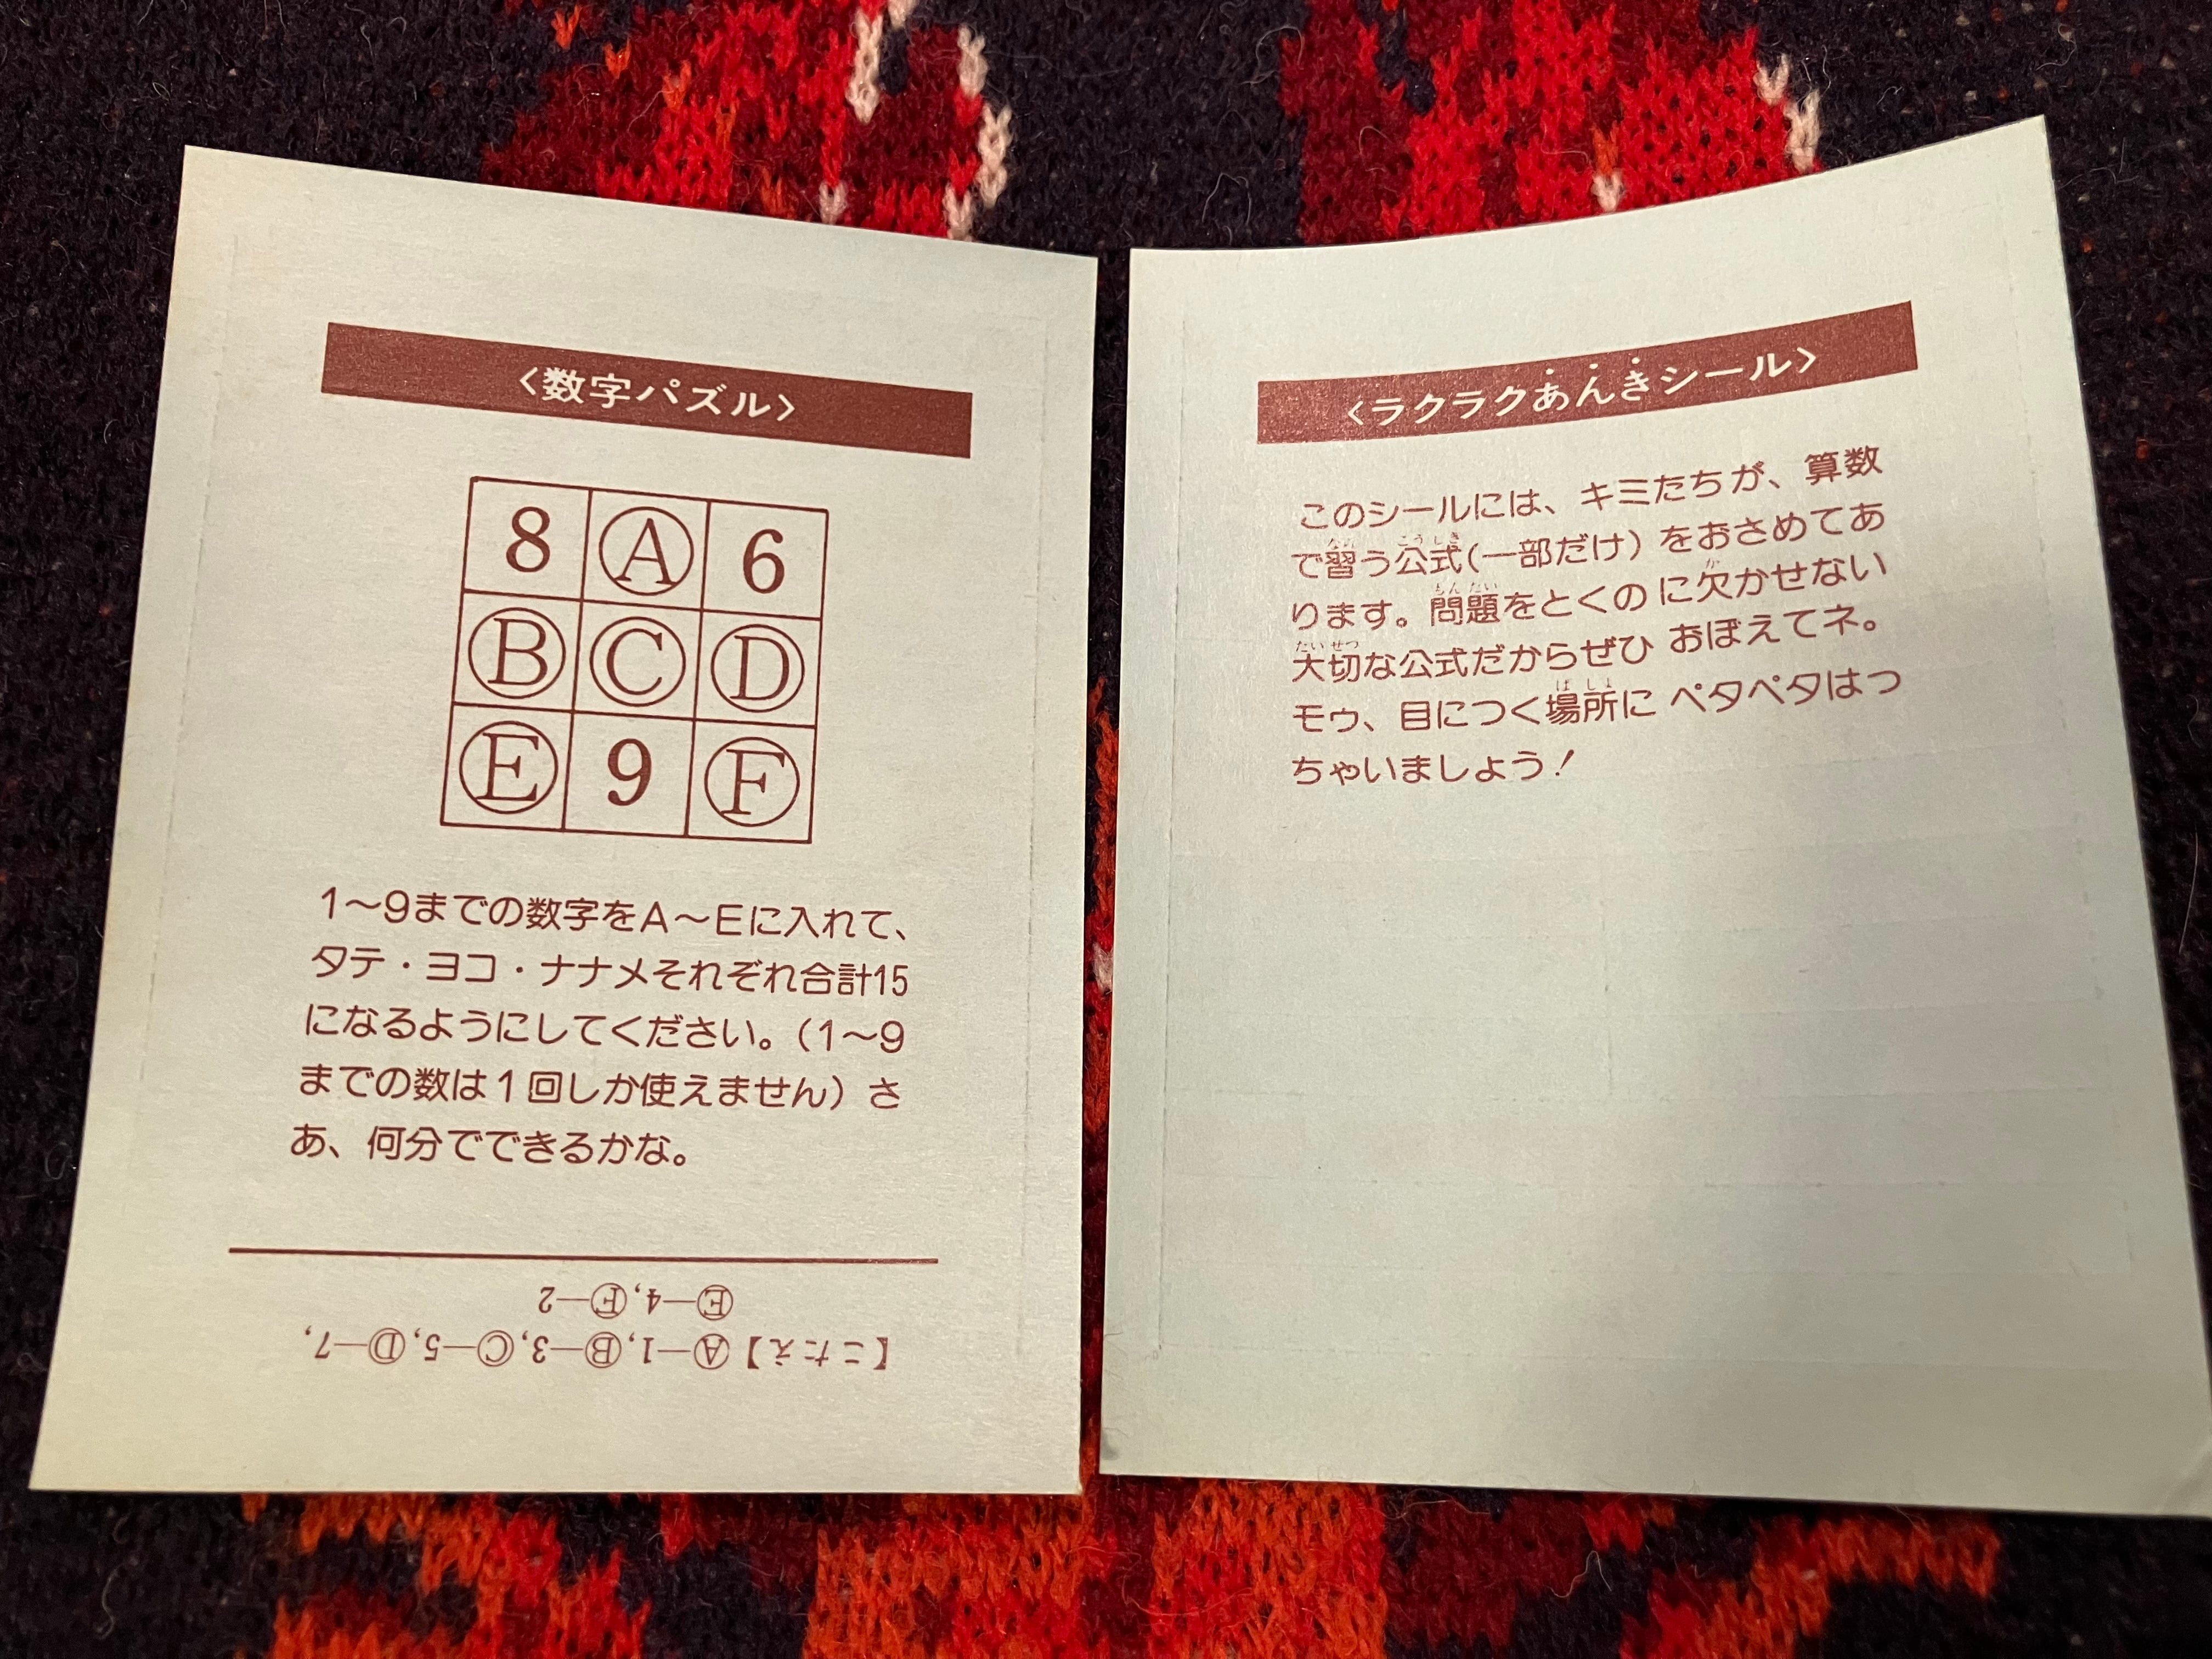 〈数字パズル〉
8 Ⓐ 6
Ⓑ Ⓒ Ⓓ
Ⓔ 9 Ⓕ
1〜9までの数字をA〜Eに入れて、
タテ・ヨコ・ナナメそれぞれ合計15
になるようにしてください。(1〜9
までの数は1回しか使えません)さ
あ、何分でできるかな。
【こたえ】Ⓐ―1,Ⓑ―3,Ⓒ―5,Ⓓ―7,
Ⓔ―4,Ⓕ―2
〈ラクラクあんきシール〉
このシールには、キミたちが、算数
で習う公式(一部だけ)をおさめてあ
ります。問題をとくのに欠かせない
大切な公式だからぜひおぼえてネ。
モゥ、目につく場所にペタペタはっ
ちゃいましょう!